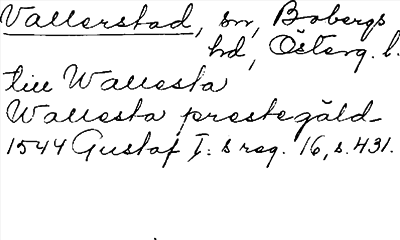 Vallerstad, sn, Bobergs
hd, Österg. l.
till Wallesta
Wallesta prestegäld
1544 Gustaf I: s reg. 16, s. 431.